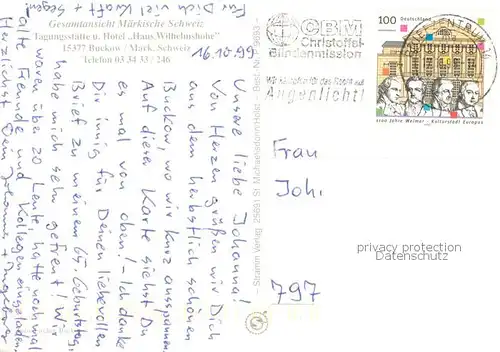 Gesamtansicht Märkische Schweiz
Tagungsstätte u. Hotel „Haus Wilhelmshöhe"
15377 Buckow / Märk. Schweiz
Telefon 03 34 33 / 246
16.10.99
Unsere liebe Johanna!
Von Herzen grüßen wir Dich
aus dem herbstlich schönen
Buckow, wo wir kurz ausspannen.
Auf dieser Karte siehst Du
es mal von oben! – Ich danke
Dir innig für Deinen liebevollen
Brief zu meinem 65. Geburtstag,
habe mich sehr gefreut! Wir
waren über 20 Leute, hatte nochmal
alte Freunde und Kollegen eingeladen.
Herzlichst Dein Johannes + Ingeborg
Für Dich viel Kraft +
Segen!
CBM
Christoffel-
Blindenmission
Augenlicht!
100
Deutschland
1100 Jahre Weimar _ Kulturstadt Europas
BRIEFZENTRUM
Stramm Verlag 25691 St. Michaelisdonn/Holst. – Best. Nr. 9693
Frau
Joh.
797
privacy protection
Datenschutz